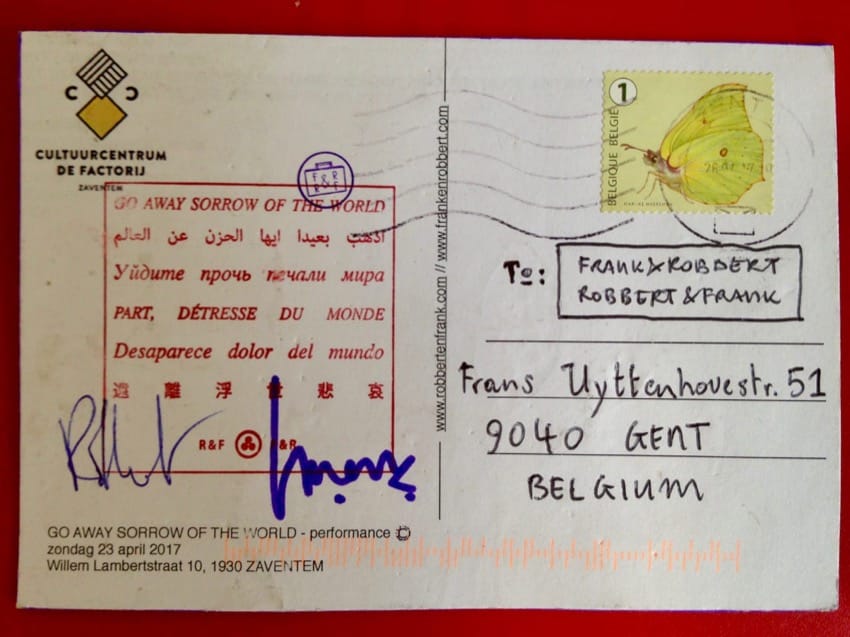 CULTUURCENTRUM
DE FACTORIJ
ZAVENTEM
F&R
R&F
GO AWAY SORROW OF THE WORLD
اذهب بعيدا ايها الحزن عن العالم
Уйдите прочь печали мира
PART, DÉTRESSE DU MONDE
Desaparece dolor del mundo
遠離浮世悲哀
R&F F&R
GO AWAY SORROW OF THE WORLD - performance
zondag 23 april 2017
Willem Lambertstraat 10, 1930 ZAVENTEM
www.robbertenfrank.com // www.frankenrobbert.com
1
BELGIQUE BELGIË
GENT
To:
FRANK&ROBBERT
ROBBERT&FRANK
Frans Uyttenhovestr. 51
9040 GENT
BELGIUM